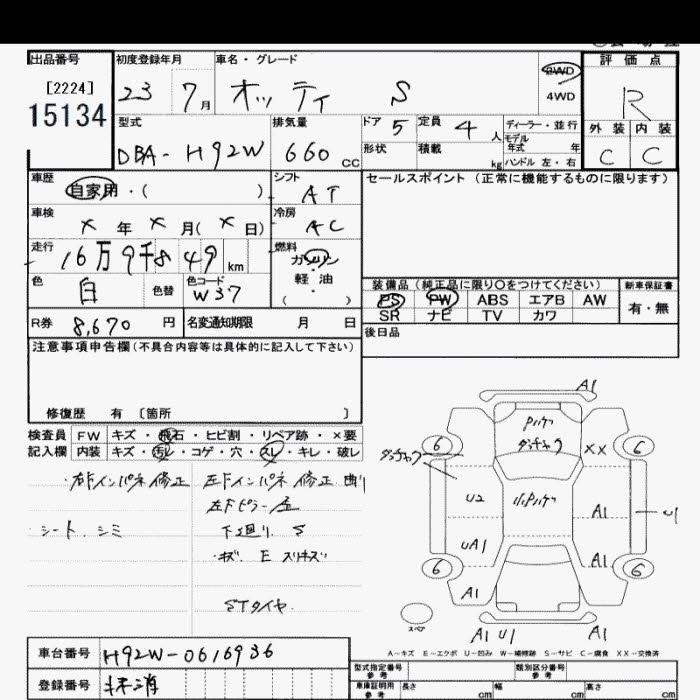 出品番号
[2224]
15134
初度登録年月
23 7月
車名・グレード
オッティ S
2WD
4WD
評価点
R
外装 内装
C C
型式
DBA-H92W
排気量
660 cc
ドア 5
定員 4 人
形状
積載 kg
ディーラー・並行
モデル年式 年
ハンドル 左・右
車歴
自家用・( )
シフト
AT
セールスポイント(正常に機能するものに限ります)
車検
× 年 × 月( × 日)
冷房
AC
走行
16万9千849 km
燃料
ガソリン
軽油
( )
色
白
色替
色コード
W37
装備品(純正品に限り○をつけてください)
新車保証書
PS PW ABS エアB AW
SR ナビ TV カワ
有・無
R券 8,670 円
名変通知期限 月 日
後日品
注意事項申告欄(不具合内容等は具体的に記入して下さい)
修復歴 有 [箇所 ]
検査員
記入欄
FW キズ・飛石・ヒビ割・リペア跡・×要
内装 キズ・汚レ・コゲ・穴・スレ・キレ・破レ
右Fインパネ修正
左Fインパネ修正
左Fピラー
シート、シミ
下廻り S
キズ、E スリキズ
STタイヤ
A1
6
6
××
U2
A1
U1
UA1
A1
6
6
A1
A1 U1
A1
スペア
A-キズ E-エクボ U-凹み W-補修跡 S-サビ C-腐食 XX-交換済
車台番号 H92W-0616936
登録番号 抹消
型式指定番号
参考
類別区分番号
参考
車庫証明用
参考
長さ cm
幅 cm
高さ cm